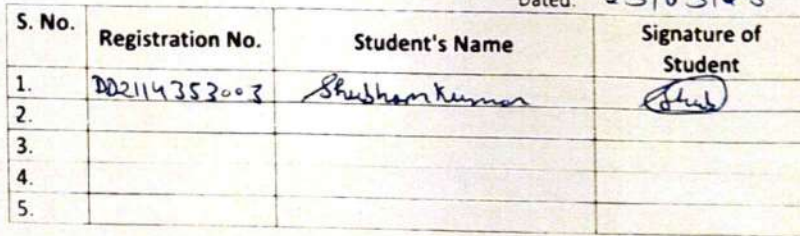 Dated:
S. No. Registration No. Student's Name Signature of Student
1. DD2114353003 Shubham Kumar
2.
3.
4.
5.